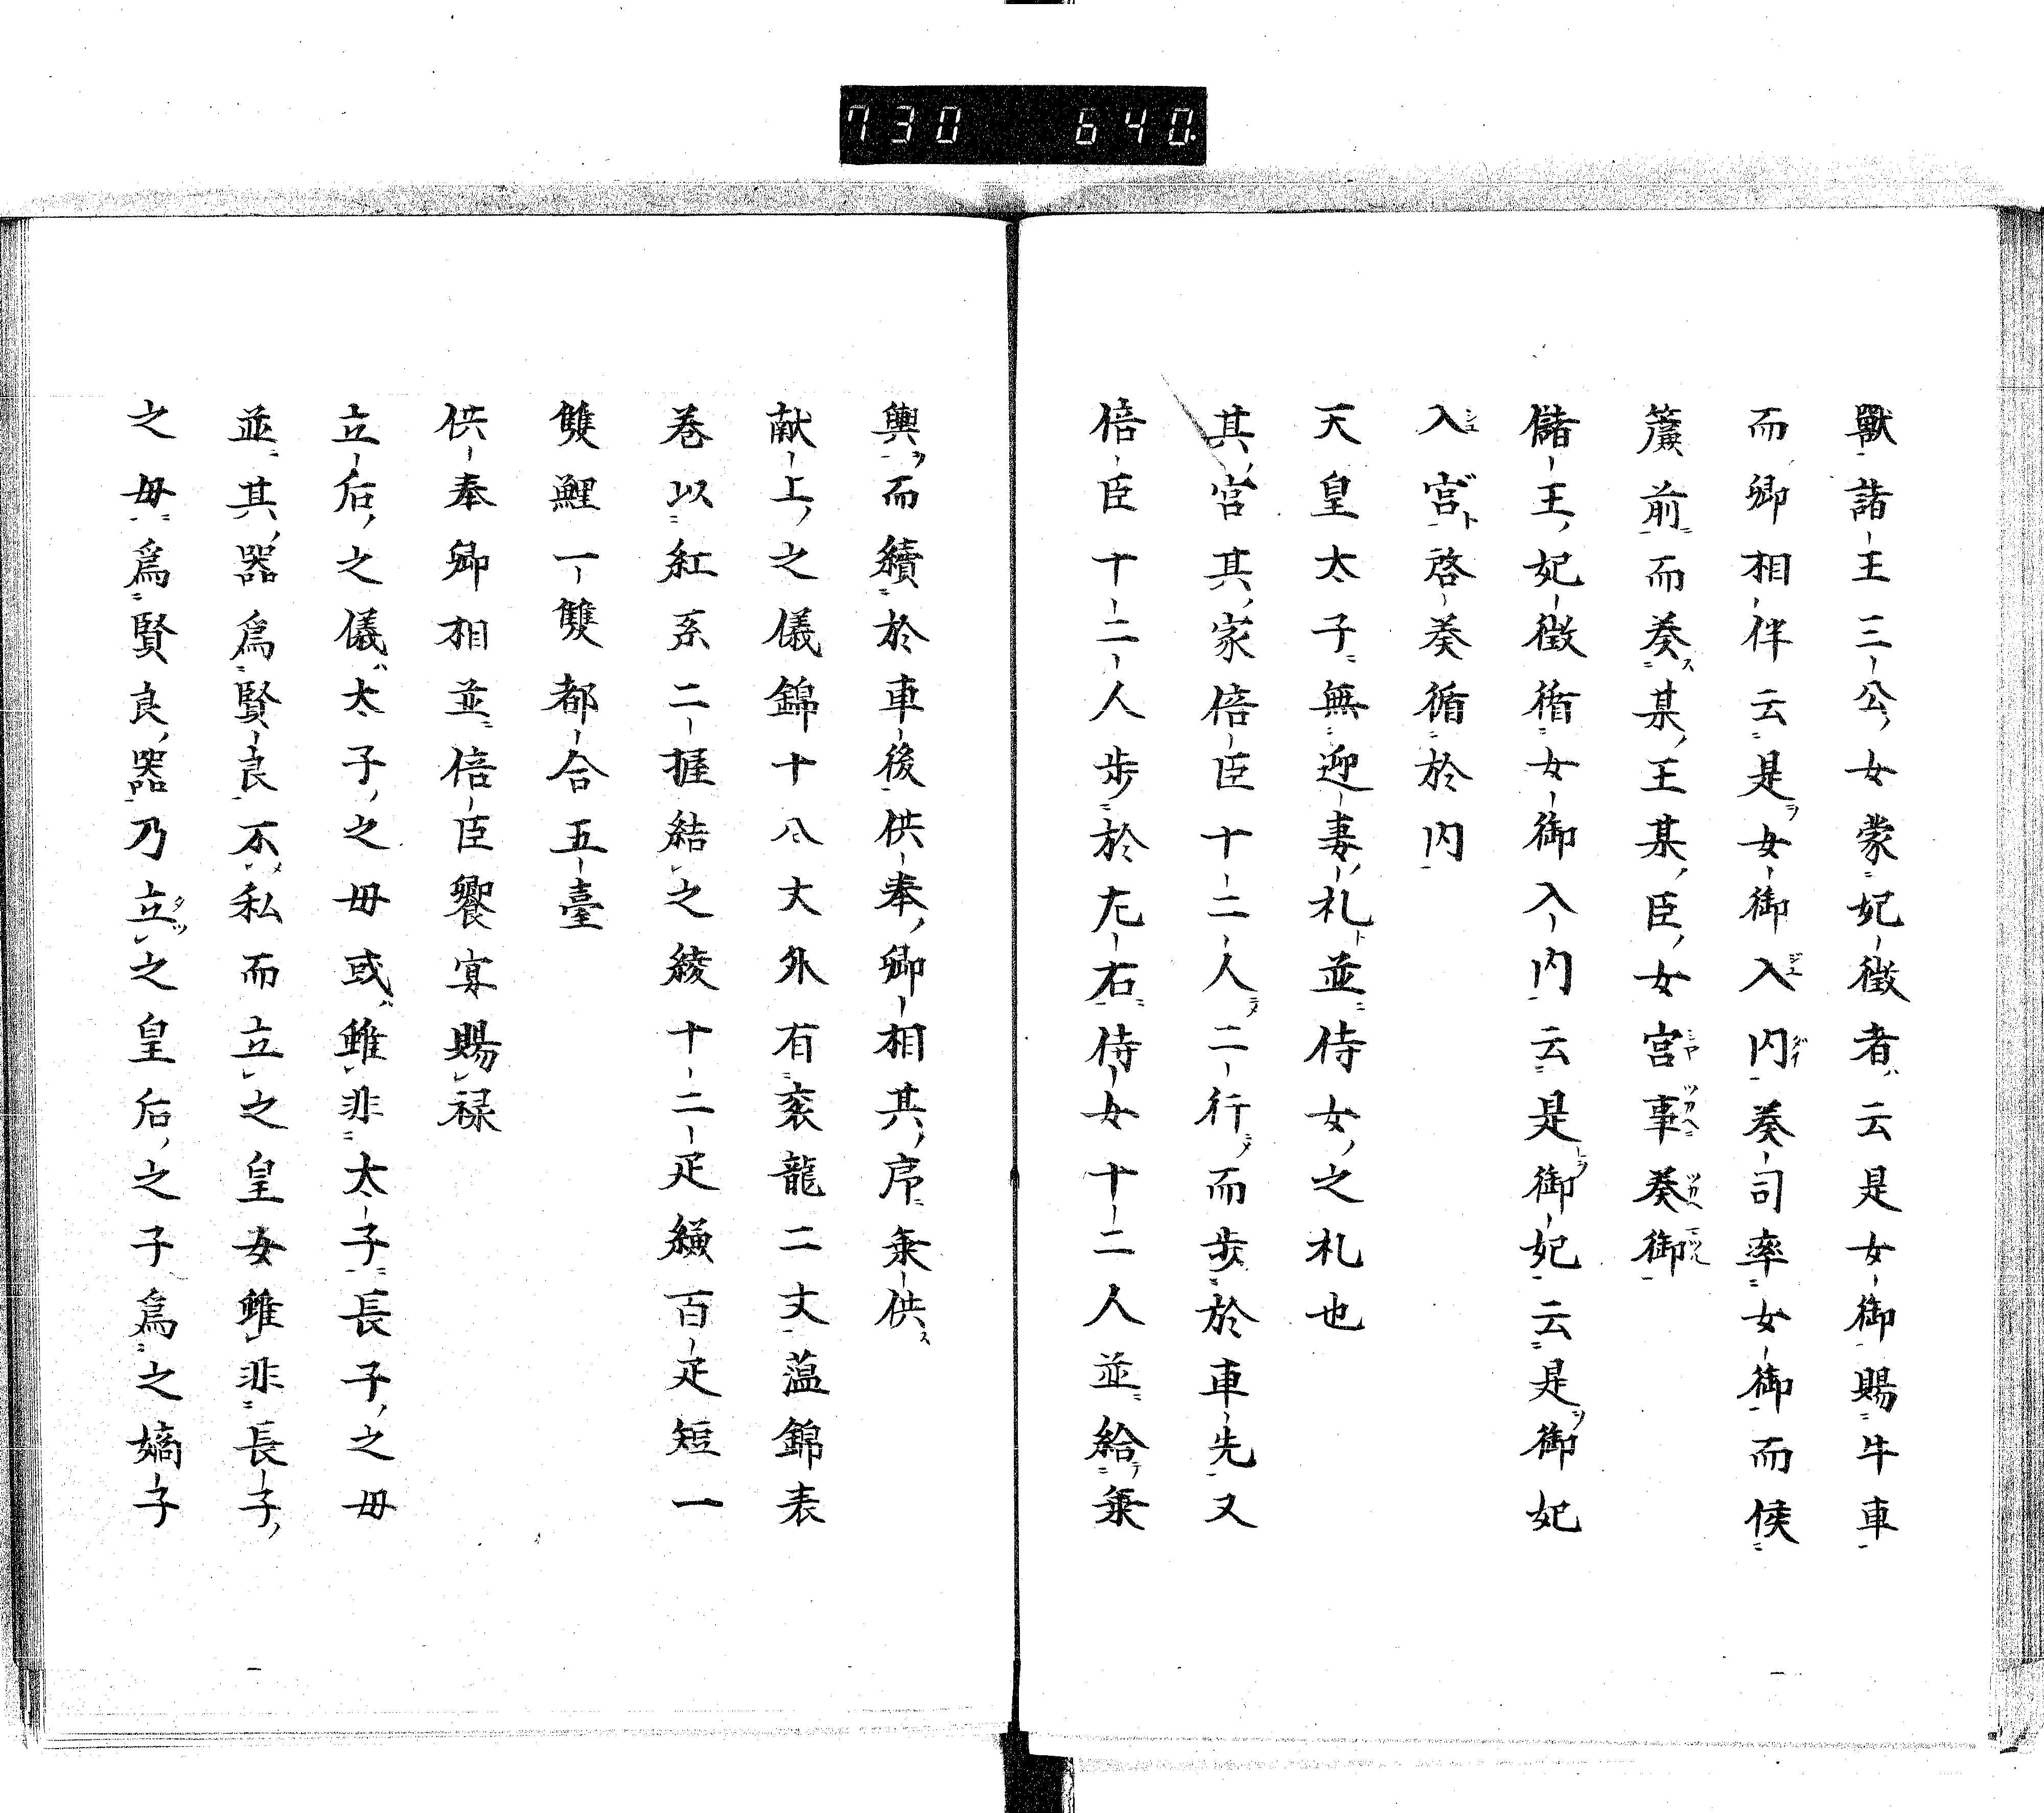 730 640.
獸諸王三公女蒙妃徴者云是女御賜牛車
而卿相伴云是女御入内奏司率女御而侯
簾前而奏某王某臣女宮事奏御
儲王妃徴循女御入内云是御妃云是御妃
入宮啓奏循於内
天皇太子無迎妻礼並侍女之札也
其宮其家倍臣十二人二行而歩於車先又
倍臣十二人歩於左右侍女十二人並給乗
輿而續於車後供奉卿相其序乗供
献上之儀錦十八丈外有袞龍二丈蒀錦表
巻以紅系二握結之綾十二疋纐百疋短一
雙鯉一雙都合五臺
供奉卿相並倍臣饗宴賜禄
立后之儀太子之毋或雖非太子長子之毋
並其器爲賢良不私而立之皇女雖非長子
之毋爲賢良器乃立之皇后之子爲之嫡子